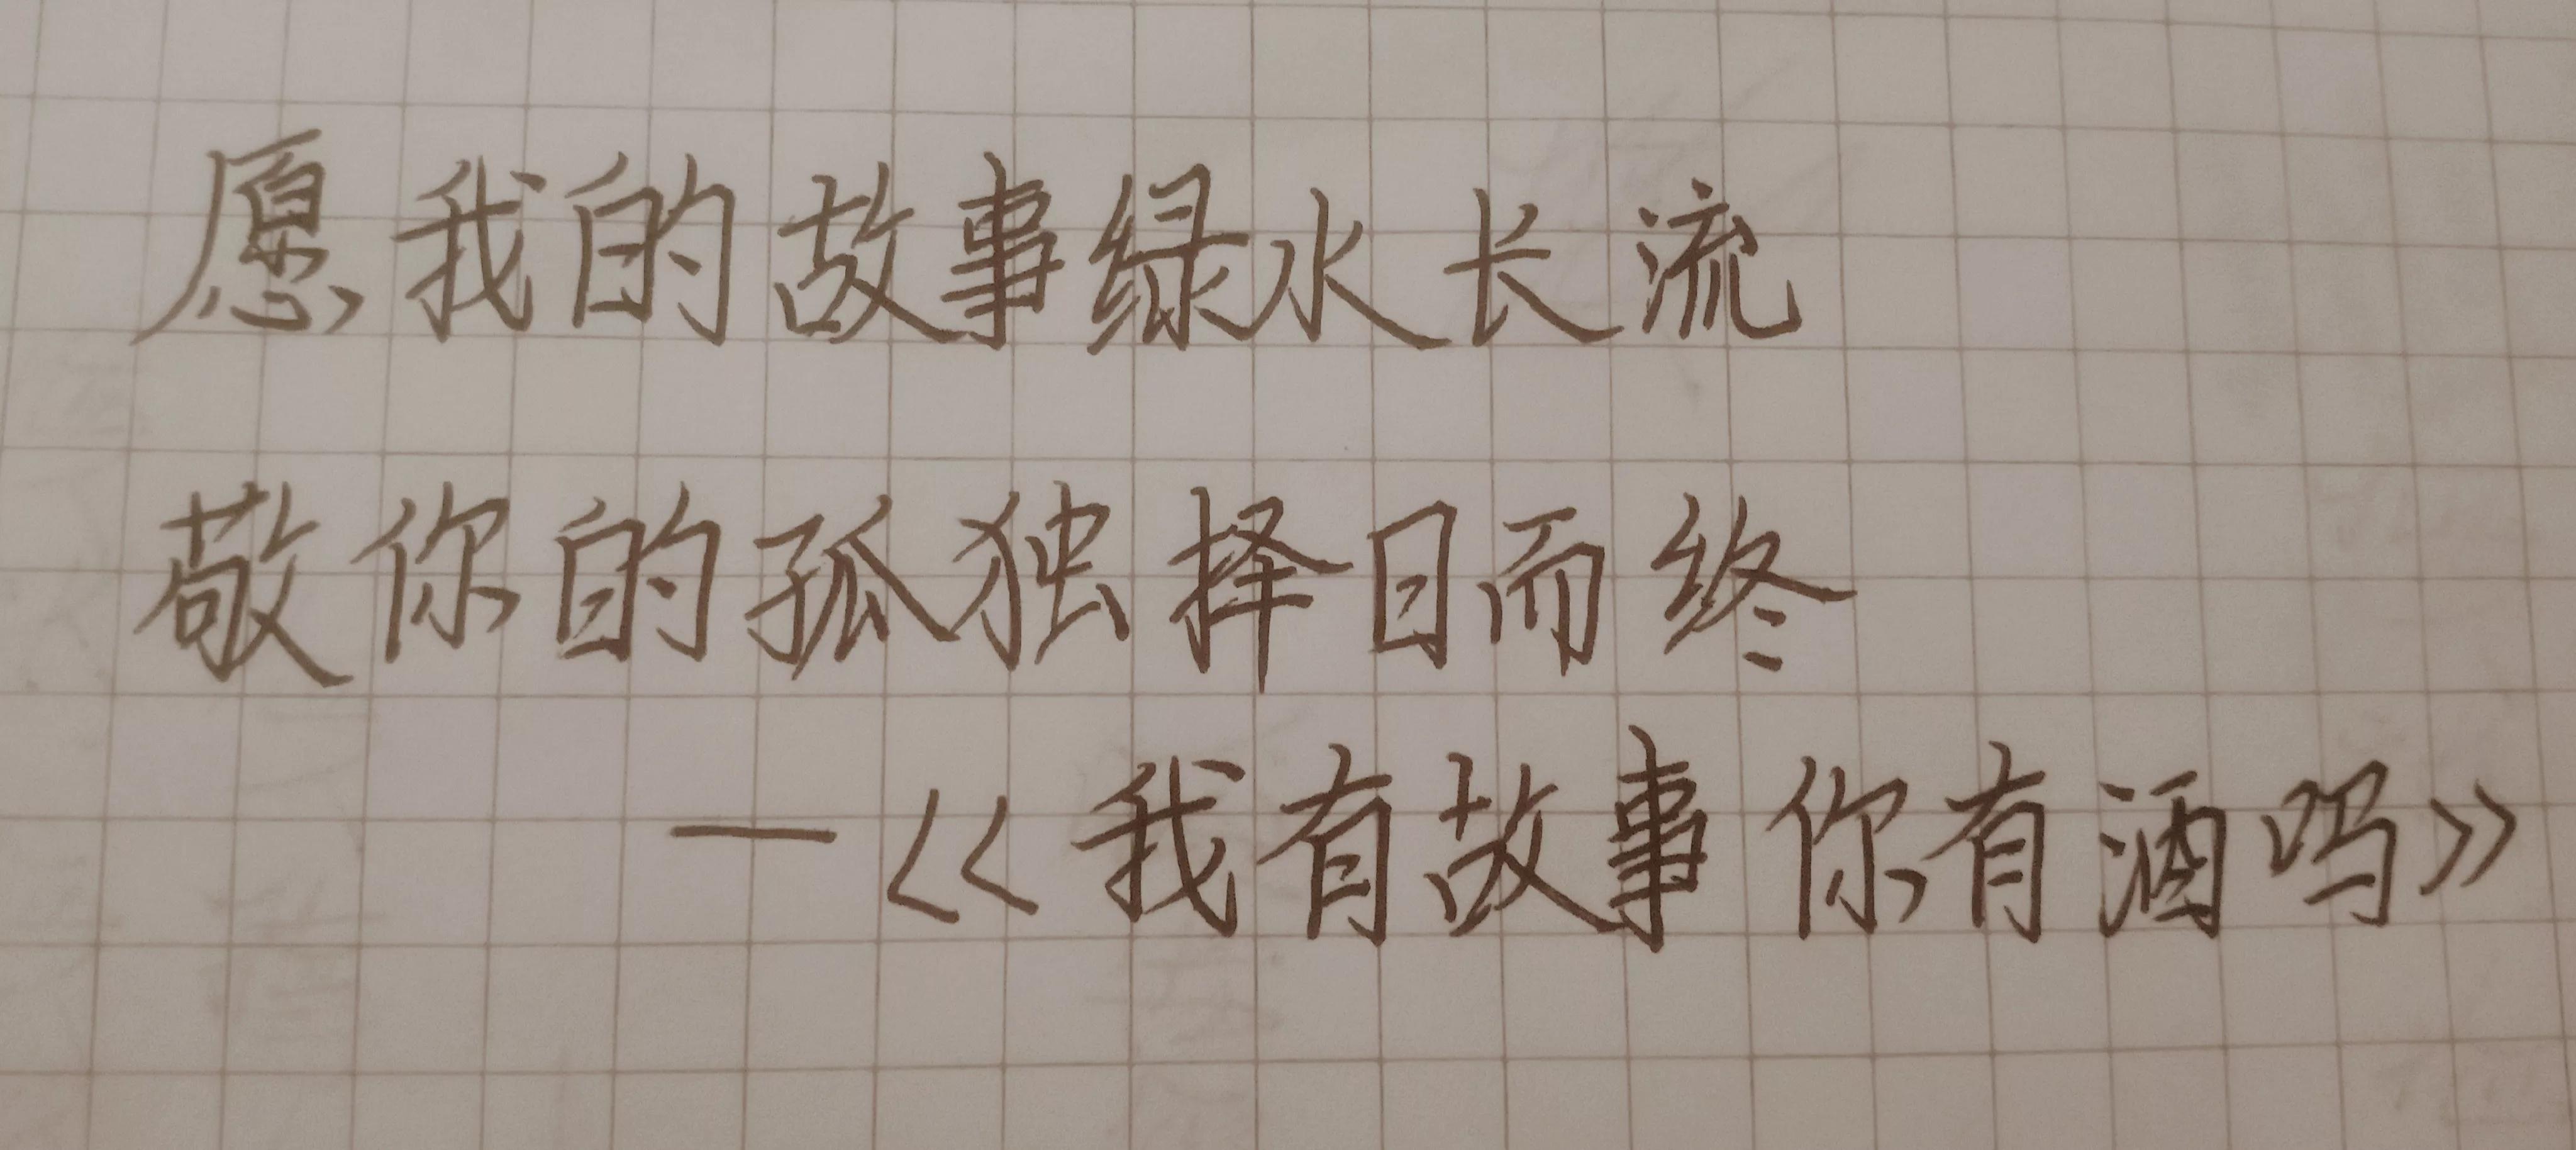 愿我的故事绿水长流
敬你的孤独择日而终
—《我有故事你有酒吗》